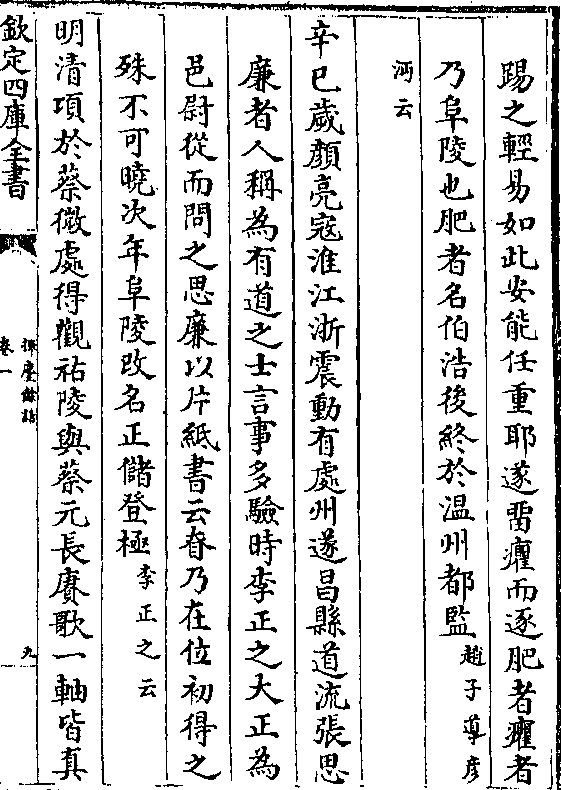 踢之輕易如此安能任重耶遂畱癯而逐肥者癯者
乃阜陵也肥者名伯浩後終於温州都監趙子導彦
沔云
辛巳歲顔亮寇淮江浙震動有處州遂昌縣道流張思
廉者人稱為有道之士言事多驗時李正之大正為
邑尉從而問之思廉以片紙書云眘乃在位初得之
殊不可曉次年阜陵改名正儲登極李正之云
明清項於蔡微處得觀祐陵與蔡元長賡歌一軸皆真
欽定四庫全書
揮麈餘話
卷一
九